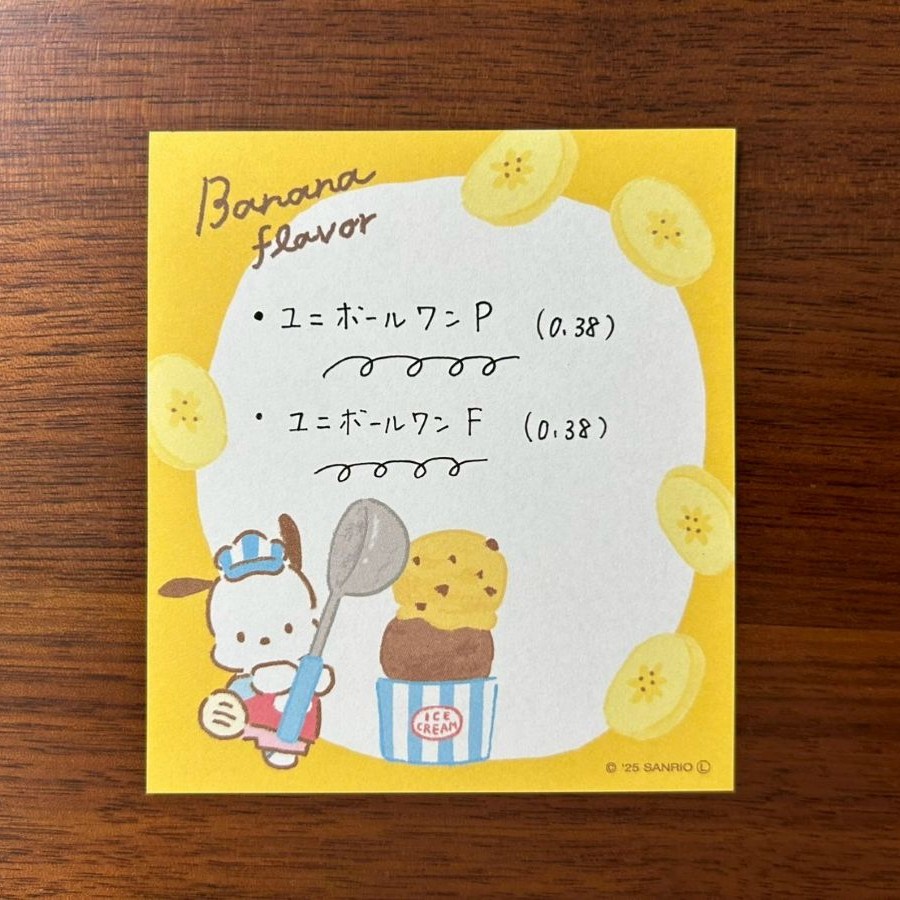 Banana
flavor
・ユニボールワンP (0.38)
・ユニボールワンF (0.38)
ICE
CREAM
© '25 SANRIO Ⓛ